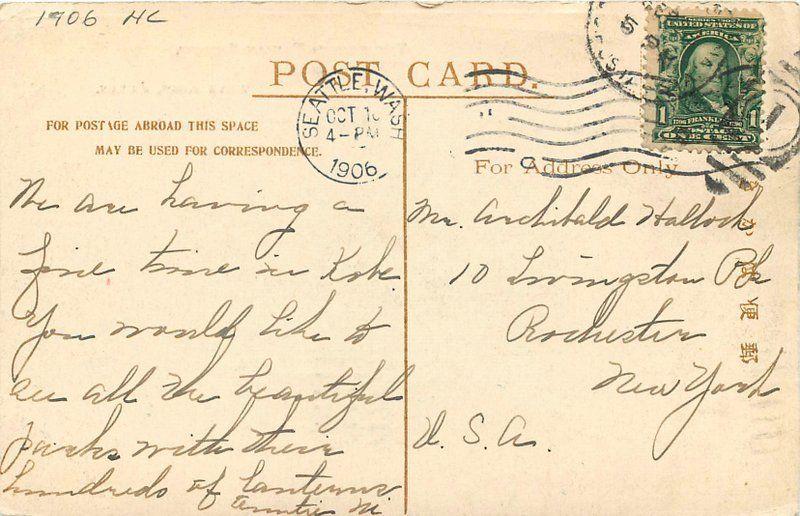 1906 HC
POST CARD.
FOR POSTAGE ABROAD THIS SPACE
MAY BE USED FOR CORRESPONDENCE.
SEATTLE, WASH
OCT 1
4-PM
1906
SERIES 1902
UNITED STATES OF
AMERICA
1 FRANKLIN 1
POSTAGE
ONE CENT
For Address Only
We are having a
fine time in Kobe
You would like to
see all the beautiful
parks with their
hundreds of lanterns
Auntie M.
Mr. Archibald Hallock
10 Livingston Pk
Rochester
New York
U. S. A.
郵便はかき